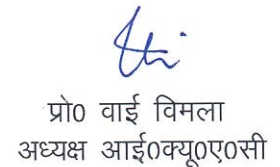 प्रो0 वाई विमला
अध्यक्ष आई0क्यू0ए0सी